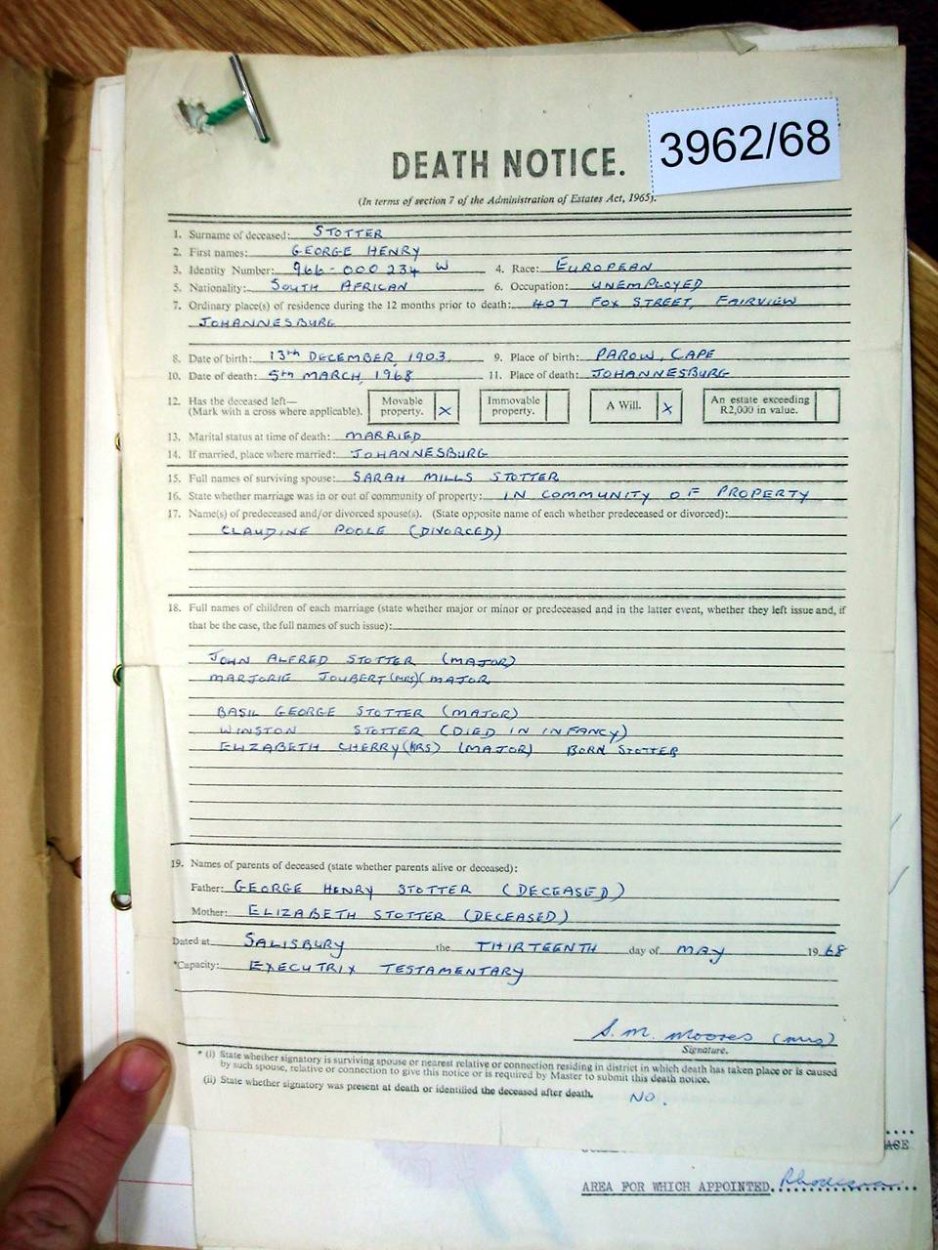 3962/68
DEATH NOTICE.
(In terms of section 7 of the Administration of Estates Act, 1965).
1. Surname of deceased: STOTTER
2. First names: GEORGE HENRY
3. Identity Number: 966-000234 W 4. Race: EUROPEAN
5. Nationality: SOUTH AFRICAN 6. Occupation: UNEMPLOYED
7. Ordinary place(s) of residence during the 12 months prior to death: 407 FOX STREET, FAIRVIEW
JOHANNESBURG
8. Date of birth: 13th DECEMBER, 1903. 9. Place of birth: PAROW, CAPE
10. Date of death: 5th MARCH, 1968 11. Place of death: JOHANNESBURG
12. Has the deceased left— Movable Immovable A Will. X An estate exceeding
(Mark with a cross where applicable). property. X property. R2,000 in value.
13. Marital status at time of death: MARRIED
14. If married, place where married: JOHANNESBURG
15. Full names of surviving spouse: SARAH MILLS STOTTER
16. State whether marriage was in or out of community of property: IN COMMUNITY OF PROPERTY
17. Name(s) of predeceased and/or divorced spouse(s). (State opposite name of each whether predeceased or divorced):
CLAUDINE POOLE (DIVORCED)
18. Full names of children of each marriage (state whether major or minor or predeceased and in the latter event, whether they left issue and, if
that be the case, the full names of such issue):
JOHN ALFRED STOTTER (MAJOR)
MARJORIE JOUBERT (MRS) (MAJOR
BASIL GEORGE STOTTER (MAJOR)
WINSTON STOTTER (DIED IN INFANCY)
ELIZABETH CHERRY (MRS) (MAJOR) BORN STOTTER
19. Names of parents of deceased (state whether parents alive or deceased):
Father: GEORGE HENRY STOTTER (DECEASED)
Mother: ELIZABETH STOTTER (DECEASED)
Dated at SALISBURY the THIRTEENTH day of MAY 1968
*Capacity: EXECUTRIX TESTAMENTARY
S. M. Moores (mrs)
Signature.
* (i) State whether signatory is surviving spouse or nearest relative or connection residing in district in which death has taken place or is caused
by such spouse, relative or connection to give this notice or is required by Master to submit this death notice.
(ii) State whether signatory was present at death or identified the deceased after death. NO.
AREA FOR WHICH APPOINTED Rhodesia